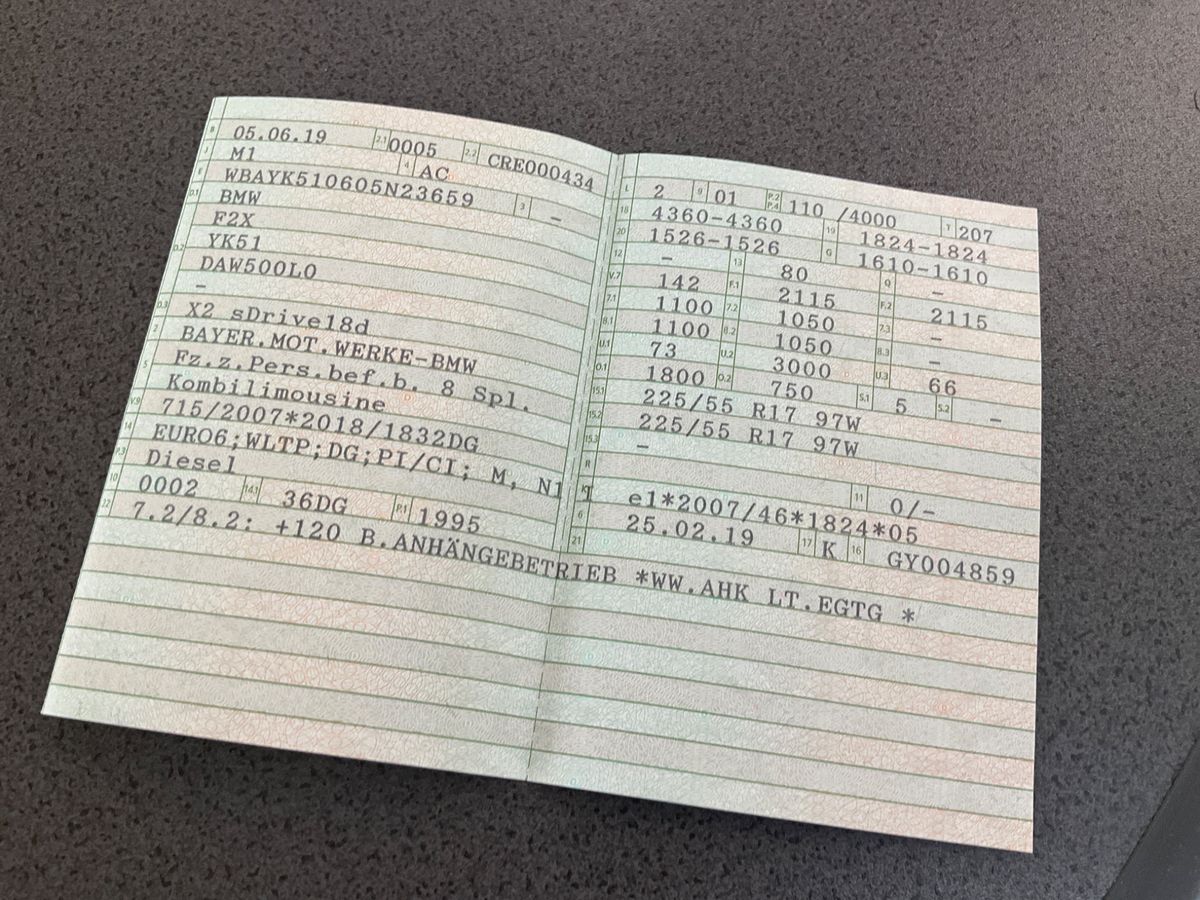 B 05.06.19 2.1 0005 2.2 CRE000434
J M1 4 AC
E WBAYK510605N23659 3 –
D.1 BMW
F2X
D.2 YK51
DAW500L0
–
D.3 X2 sDrive18d
2 BAYER.MOT.WERKE-BMW
5 Fz.z.Pers.bef.b. 8 Spl.
Kombilimousine
V.9 715/2007*2018/1832DG
14 EURO6;WLTP;DG;PI/CI; M, N1 I
P.3 Diesel
10 0002 14.1 36DG P.1 1995
22 7.2/8.2: +120 B.ANHÄNGEBETRIEB *WW.AHK LT.EGTG *
L 2 9 01 P.2 P.4 110 /4000 T 207
18 4360-4360 19 1824-1824
20 1526-1526 G 1610-1610
12 – 13 80 Q –
V.7 142 F.1 2115 F.2 2115
7.1 1100 7.2 1050 7.3 –
8.1 1100 8.2 1050 8.3 –
U.1 73 U.2 3000 U.3 66
O.1 1800 O.2 750 S.1 5 S.2 –
15.1 225/55 R17 97W
15.2 225/55 R17 97W
15.3 –
R 11 0/-
K e1*2007/46*1824*05
6 25.02.19 17 K 16 GY004859
21